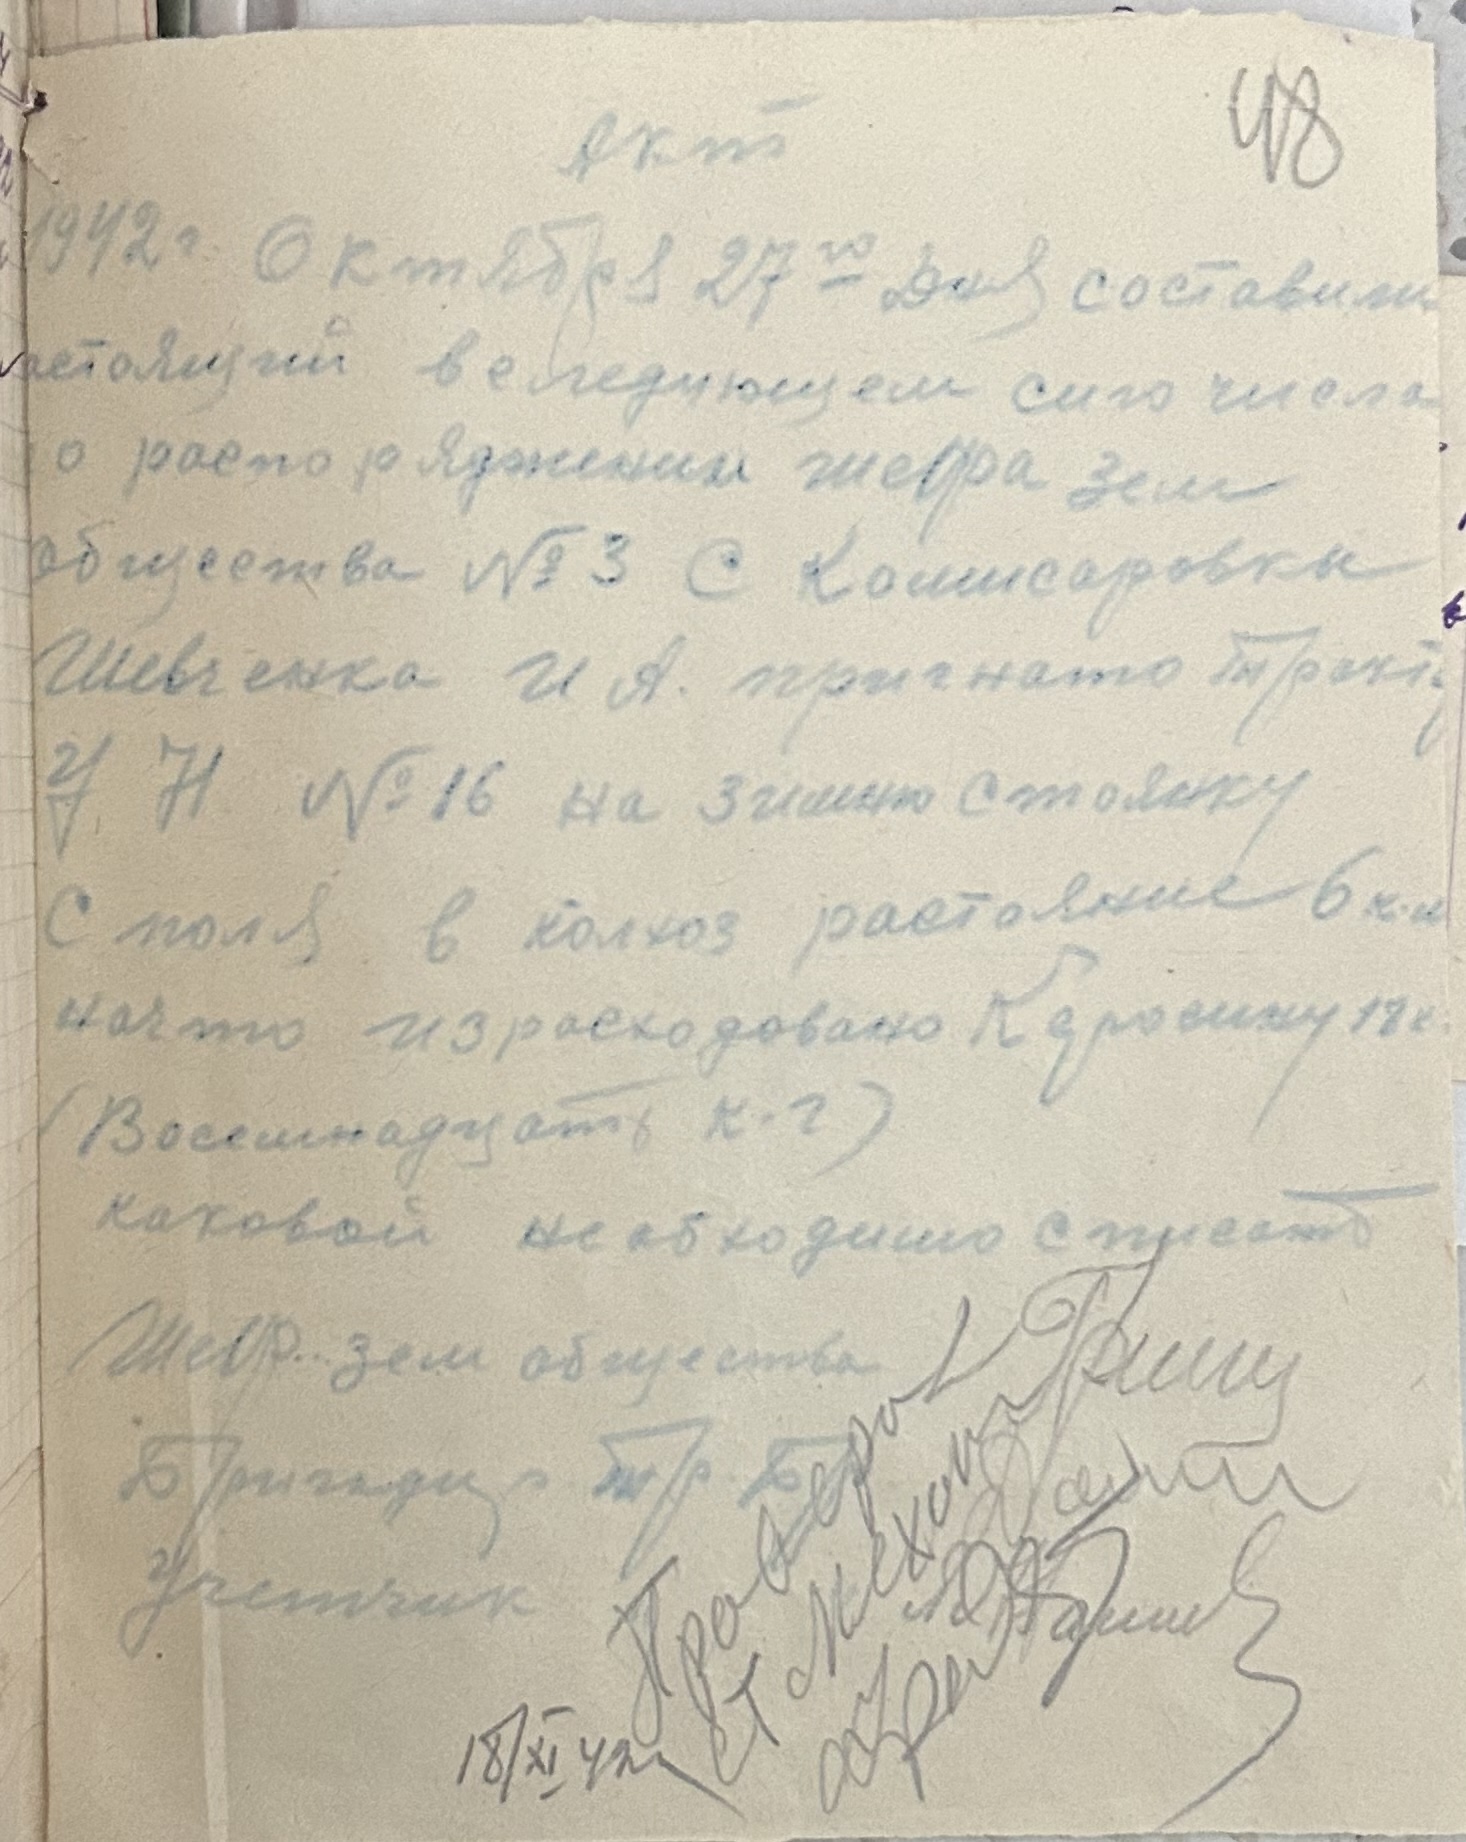 48
Акт
1942 г. Октября 27го дня составили
астоящий в следующем сиго числа
о распоряджении шефра зем
общества № 3 С Комисаровки
Шевченка И А. пригнато тракт
У Н № 16 на зимню стоянку
С поля в колхоз растояние 6 к.м
начто израсходовано Керосину 18 к.
(Восемнадцать к.г)
каковой необходимо списать
Шефр. зем общества
Бригадир тр. Бр
Учетчик
Проверил
ст механик
18/XI 42